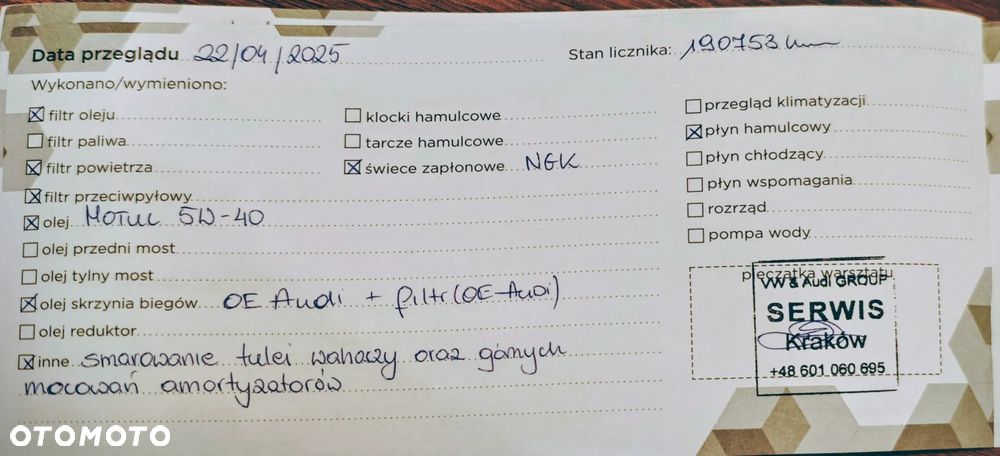 Data przeglądu 22/04/2025 Stan licznika: 190753 km
Wykonano/wymieniono:
filtr oleju
filtr paliwa
filtr powietrza
filtr przeciwpyłowy
olej MOTUL 5W-40
olej przedni most
olej tylny most
olej skrzynia biegów OE Audi + filtr (OE-Audi)
olej reduktor
inne smarowanie tulei wahaczy oraz górnych
mocowań amortyzatorów
klocki hamulcowe
tarcze hamulcowe
świece zapłonowe NGK
przegląd klimatyzacji
płyn hamulcowy
płyn chłodzący
płyn wspomagania
rozrząd
pompa wody
pieczątka warsztatu
VW & Audi GROUP
SERWIS
Kraków
+48 601 060 695
OTOMOTO